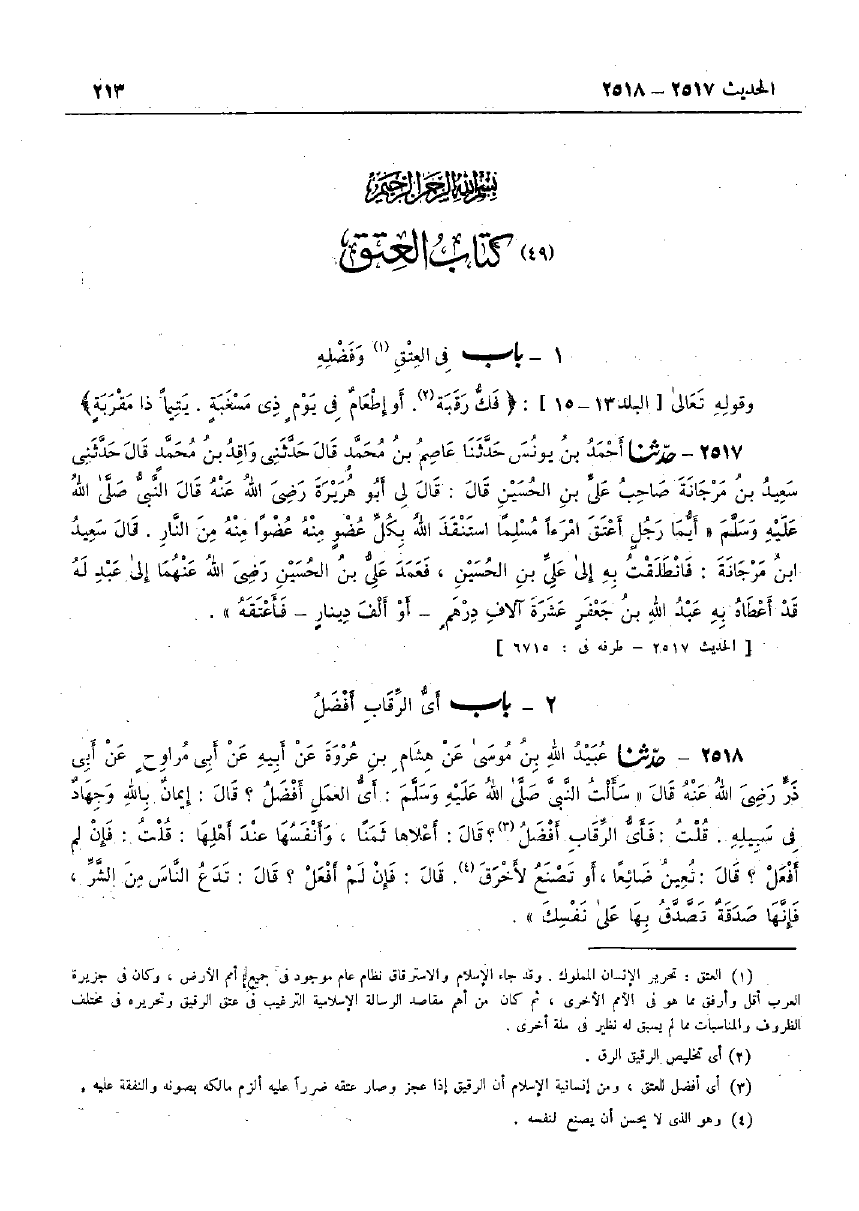 الحديث ٢٥١٧ – ٢٥١٨
٢١٣
بسم الله الرحمن الرحيم
(٤٩) كتابُ العِتق
١ – باب فِى العِتْقِ (١) وَفَضْلِهِ
وقولِهِ تَعَالىٰ [ البلد ١٣–١٥ ] : ﴿ فَكُّ رَقَبَة (٢). أَو إِطْعَامٌ فِى يَوْمٍ ذِى مَسْغَبَةٍ . يَتِيماً ذا مَقْرَبَةٍ﴾
٢٥١٧ – حدّثنا أَحْمَدُ بنُ يونُسَ حَدَّثَنَا عَاصِمُ بنُ مُحَمَّدٍ قَالَ حَدَّثَنِى وَاقِدُ بنُ مُحَمَّدٍ قَالَ حَدَّثَنِى
سَعِيدُ بنُ مَرْجَانَةَ صَاحِبُ عَلىِّ بنِ الحُسَيْنِ قَالَ : قَالَ لِى أَبُو هُرَيْرَةَ رَضِىَ اللهُ عَنْهُ قَالَ النَّبِىُّ صَلَّىٰ اللهُ
عَلَيْهِ وَسَلَّمَ « أَيُّمَا رَجُلٍ أَعْتَقَ امْرَءاً مُسْلِمًا استَنْقَذَ اللهُ بِكُلِّ عُضْوٍ مِنْهُ عُضْوًا مِنْهُ مِنَ النَّارِ . قَالَ سَعِيدُ
ابنُ مَرْجَانَةَ : فَانْطَلَقْتُ بِهِ إِلىٰ عَلِىِّ بنِ الحُسَيْنِ ، فَعَمَدَ عَلىُّ بنُ الحُسَيْنِ رَضِىَ اللهُ عَنْهُمَا إِلىٰ عَبْدٍ لَهُ
قَدْ أَعْطَاهُ بِهِ عَبْدُ اللهِ بنُ جَعْفَرٍ عَشَرَةَ آلافِ دِرْهَمٍ – أَوْ أَلْفَ دِينارٍ – فَأَعْتَقَهُ » .
[ الحديث ٢٥١٧ – طرفه فى : ٦٧١٥ ]
٢ – باب أَىُّ الرِّقَابِ أَفْضَلُ
٢٥١٨ – حدّثنا عُبَيْدُ اللهِ بنُ مُوسَىٰ عَنْ هِشَامِ بنِ عُرْوَةَ عَنْ أَبِيهِ عَنْ أَبِى مُراوِحٍ عَنْ أَبِى
ذَرٍّ رَضِىَ اللهُ عَنْهُ قَالَ « سَأَلْتُ النَّبِىَّ صَلَّىٰ اللهُ عَلَيْهِ وَسَلَّمَ : أَىُّ العمَلِ أَفْضَلُ ؟ قَالَ : إِيمَانٌ بِاللهِ وَجِهَادٌ
فِى سَبِيلِهِ . قُلْتُ : فَأَىُّ الرِّقَابِ أَفْضَلُ (٣) ؟ قَالَ : أَعْلاها ثَمَنًا ، وَأَنْفَسُهَا عِنْدَ أَهْلِهَا : قُلْتُ : فَإِنْ لم
أَفْعَلْ ؟ قَالَ : تُعِينُ ضَائِعًا ، أَو تَصْنَعُ لأَخْرَقَ (٤). قَالَ : فَإِنْ لَمْ أَفْعَلْ ؟ قَالَ : تَدَعُ النَّاسَ مِنَ الشَّرِّ ،
فَإِنَّهَا صَدَقَةٌ تَصَدَّقُ بِهَا عَلىٰ نَفْسِكَ » .
(١) العتق : تحرير الإنسان المملوك . وقد جاء الإسلام والاسترقاق نظام عام موجود فى جميع أمم الأرض ، وكان فى جزيرة
العرب أقل وأرفق مما هو فى الأمم الأخرى ، ثم كان من أهم مقاصد الرسالة الإسلامية الترغيب فى عتق الرقيق وتحريره فى مختلف
الظروف والمناسبات مما لم يسبق له نظير فى ملة أخرى .
(٢) أى تخليص الرقيق الرق .
(٣) أى أفضل للعتق ، ومن إنسانية الإسلام أن الرقيق إذا عجز وصار عتقه ضرراً عليه ألزم مالكه بصونه والنفقة عليه .
(٤) وهو الذى لا يحسن أن يصنع لنفسه .